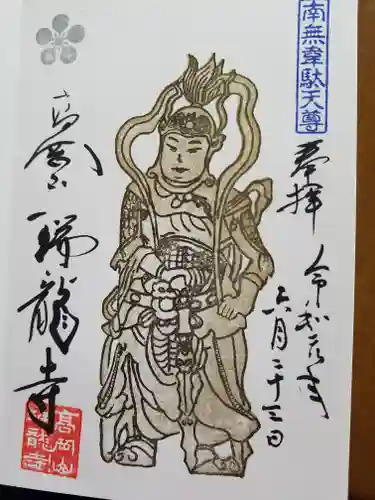 南無韋駄天尊
奉拝
令和元年
六月二十三日
高岡山
瑞龍寺
高岡山
瑞龍寺